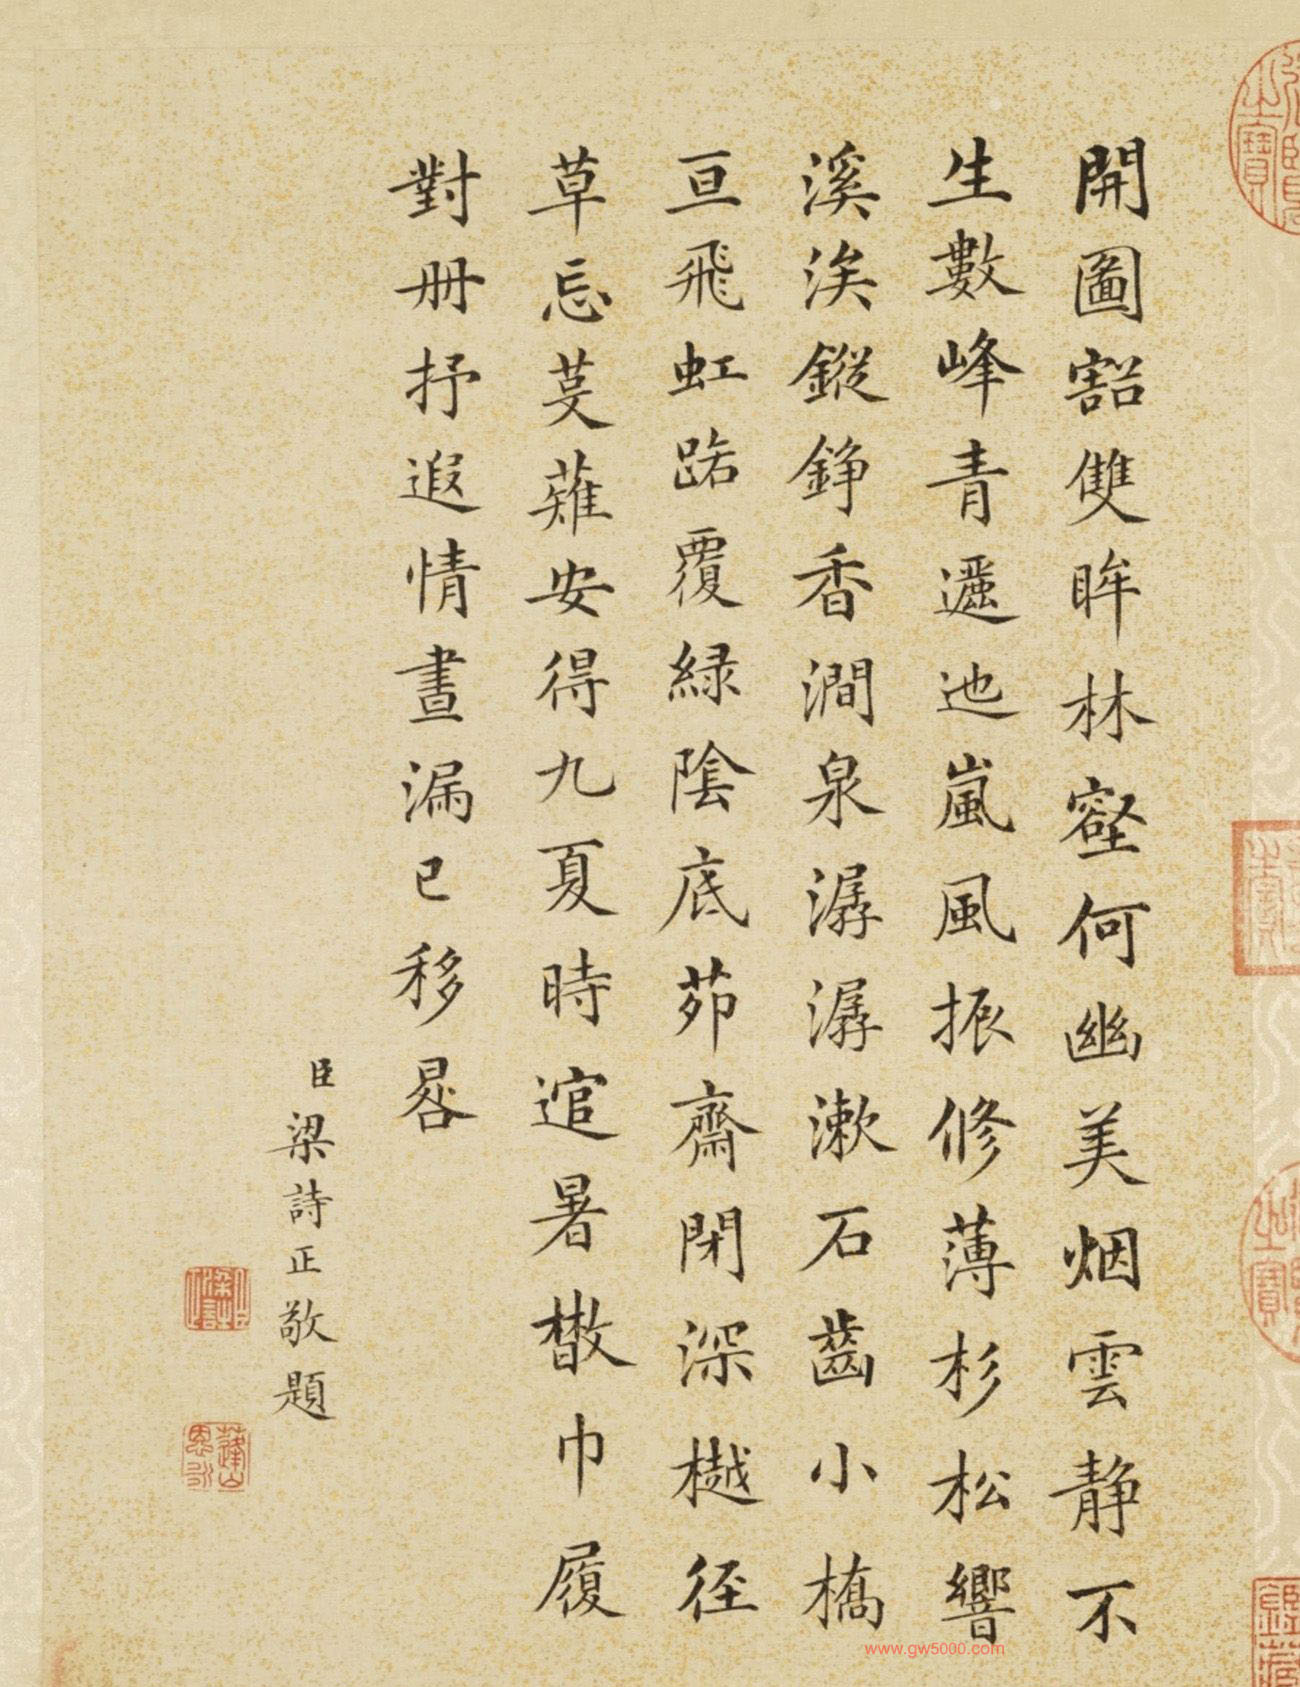 開圖豁雙眸林壑何幽美烟雲静不
生數峰青邐迆嵐風振修薄杉松響
溪涘鏦錚香澗泉潺潺漱石齒小橋
亘飛虹覆緑陰底茆齋閉深樾径
草忘芟薙安得九夏時逭暑散巾履
對冊抒遐情晝漏已移晷
臣梁詩正敬題
www.gw5000.com